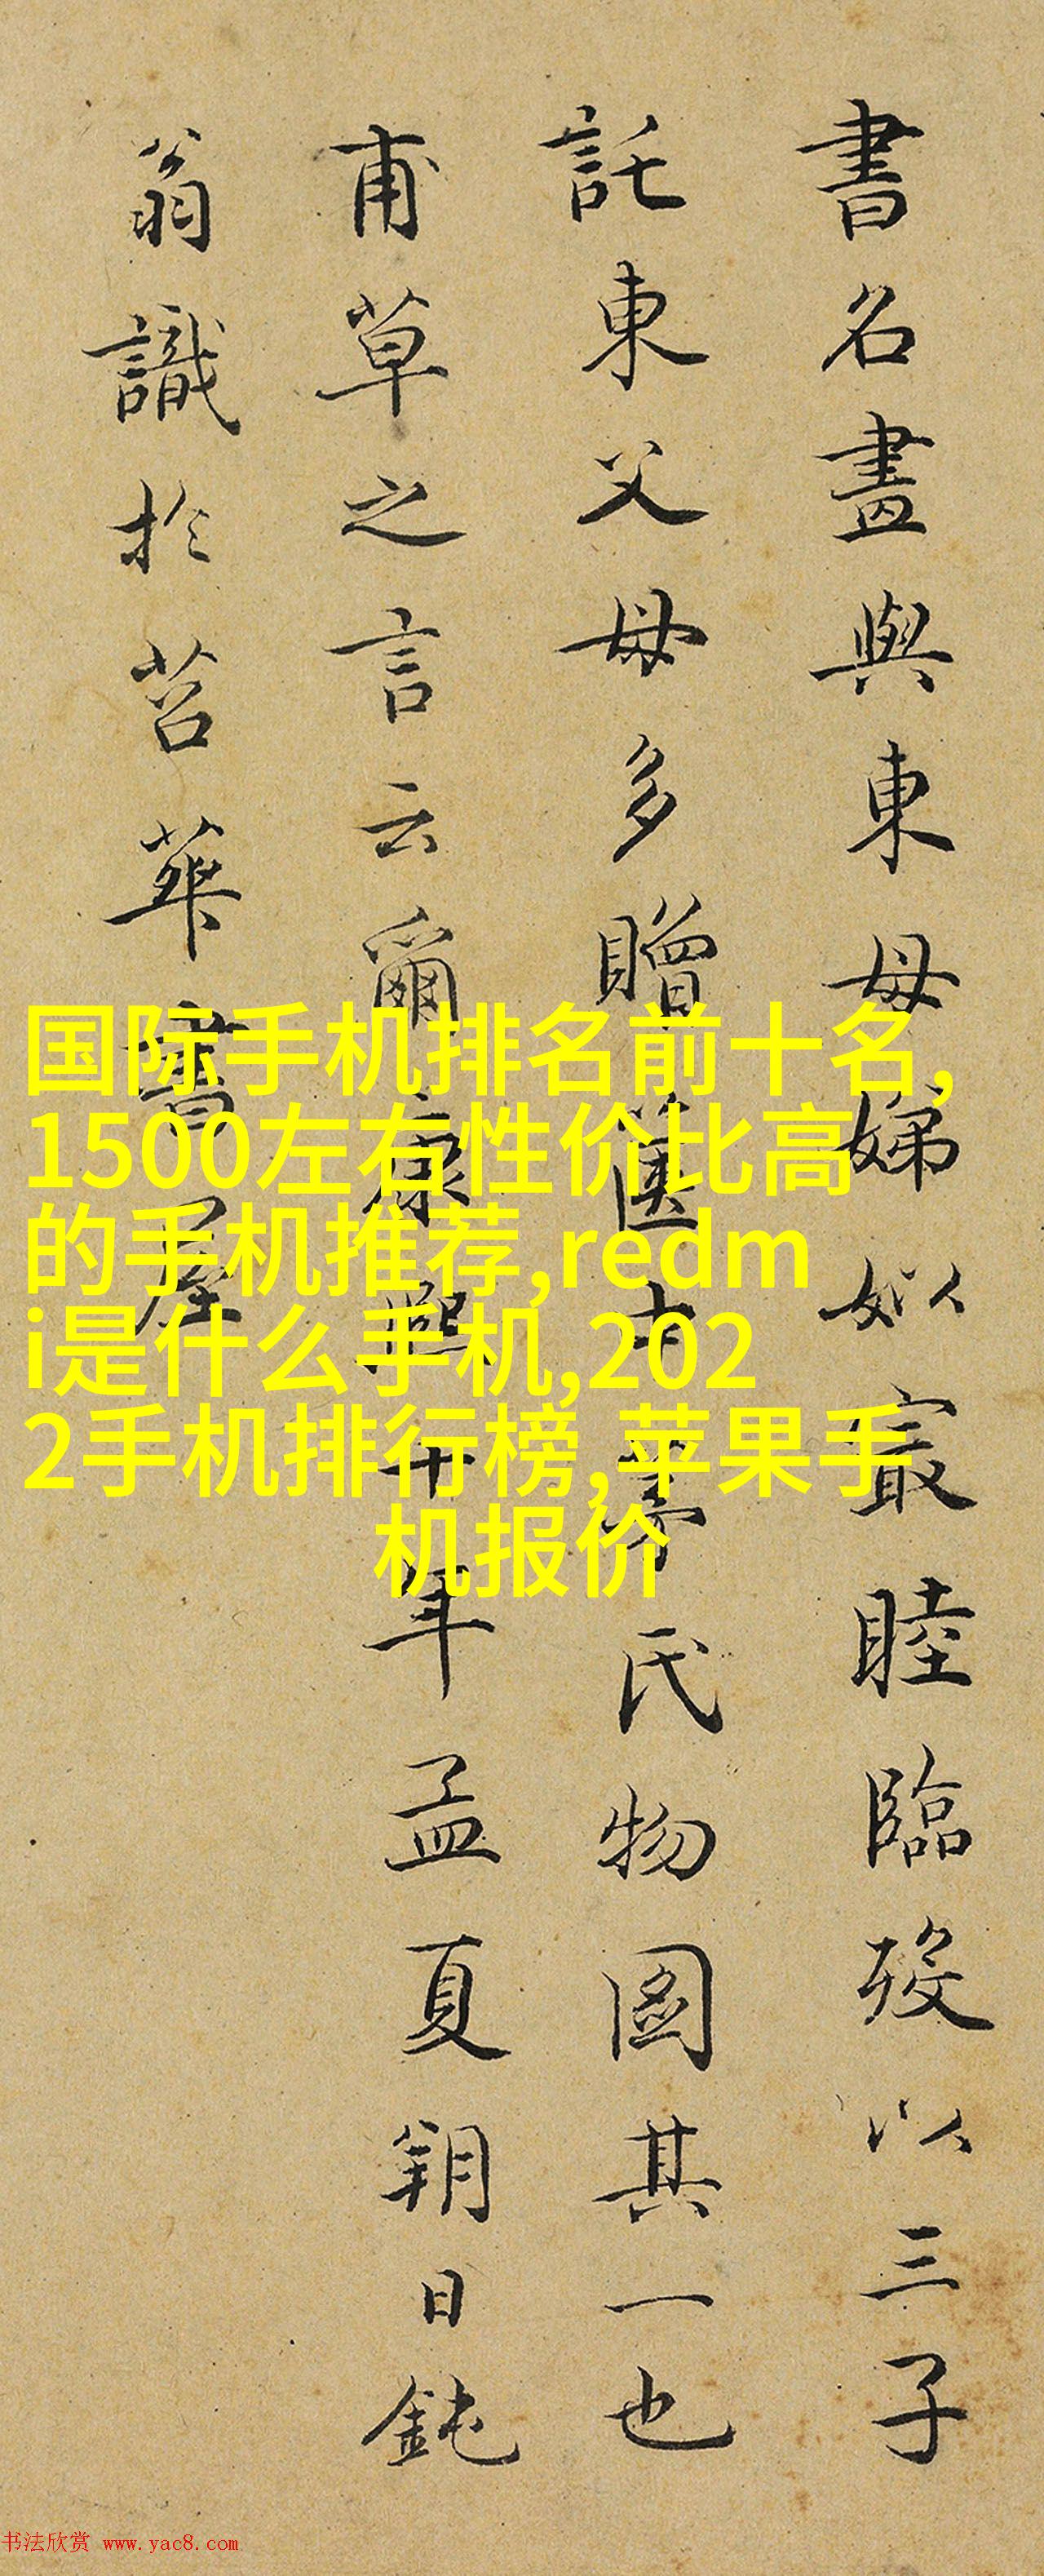 書名畫與東母婦姒寂睦臨歿以三子
託東父母多贈舊古蒡氏物圖其一也
甫草之言云爾康熙十年孟夏朔日鈍
翁識於苕華書屋
国际手机排名前十名,
1500左右性价比高
的手机推荐,redm
i是什么手机,202
2手机排行榜,苹果手
机报价
书法欣赏 www.yac8.com